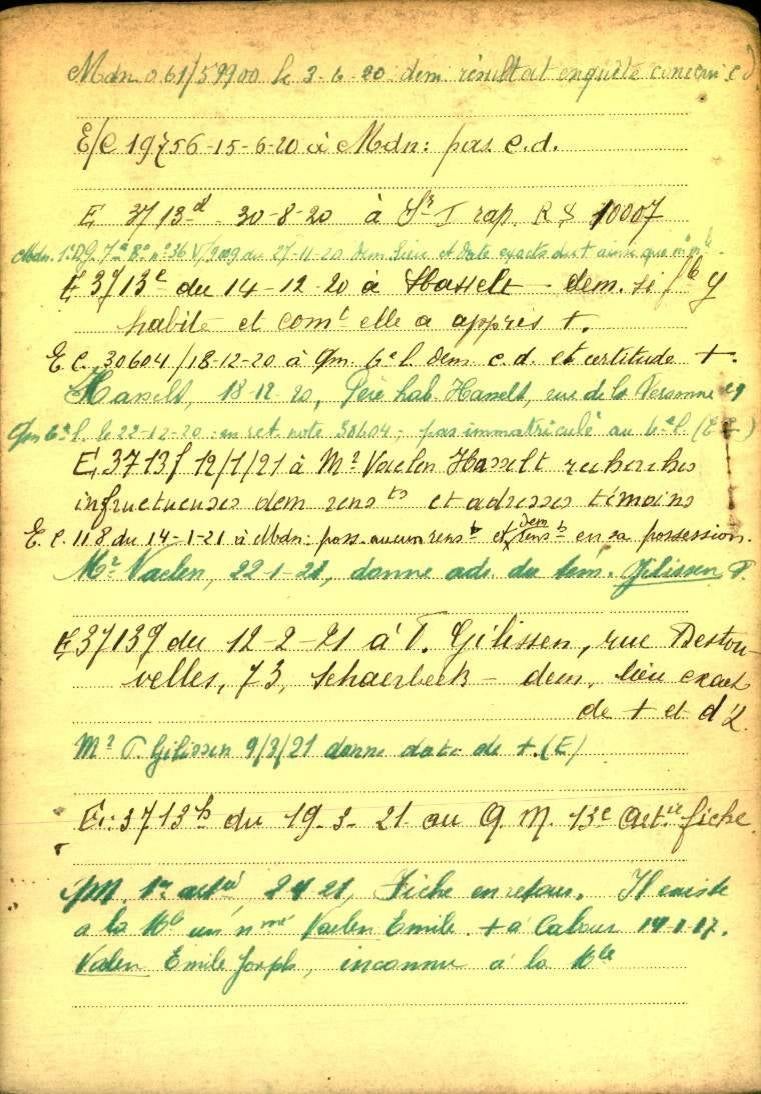 Mdn o 61/59900 le 3-6-20 dem résultat enquête concern. c.d.
E/C 19756-15-6-20 à Mdn: pas c.d.
E 3713d 30-8-20 à Sr J rap. R S 10007
Mdn. 1e D.G. 7e Bn n° 36 V/9009 du 27-11-20 dem lieu et date exacts du + ainsi que
E 3713e du 14-12-20 à Hasselt dem. si flle y
habite et comt elle a appris +.
E.C. 30604/18-12-20 à Qm. 6e l. dem c.d. et certitude +.
Hasselt, 18-12-20, Père hab. Hasselt, rue de la 49
Qm 6e l. le 22-12-20 en ret. note 30604, pas immatriculé au 6e l. (E E)
E 3713f 12/1/21 à Mr Vaelen Hasselt recherches
infructueuses dem rensts et adresses témoins
E.C. 118 du 14-1-21 à Mdn: poss. aucun rensts et dem rensts en sa possession.
Mr Vaelen, 22-1-21, donne ads du tém. Gilissen P.
E 3713g du 12-2-21 à P. Gilissen, rue Destou-
velles, 73, Schaerbeek - dem. lieu exact
de + et d'I.
Mr P. Gilissen 9/3/21 donne date de +. (E)
E: 3713h du 19-3-21 au Q.M. 13e Artie fiche
QM. 1er artie 2-4-21, Fiche en retour. Il existe
a la Mle un nmé Vaelen Emile + à Cabour 14-1-17.
Valen Emile Joseph, inconnu à la Mle